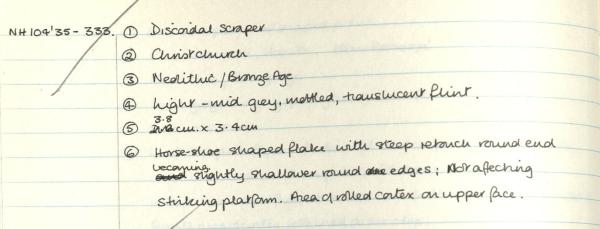 NH104'35-333. ① Discoidal Scraper
② Christchurch
③ Neolithic / Bronze Age
④ Light-mid grey, mottled, translucent flint.
3.8
⑤ cm. x 3.4cm
⑥ Horse-shoe shaped flake with steep retouch round end
becoming
slightly shallower round edges; Not affecting
striking platform. Area of rolled cortex on upper face.